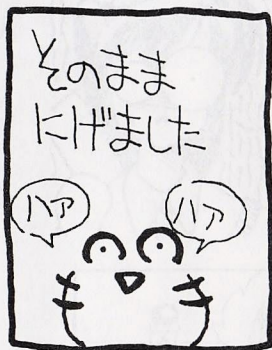 そのまま
にげました
ハァ
ハァ